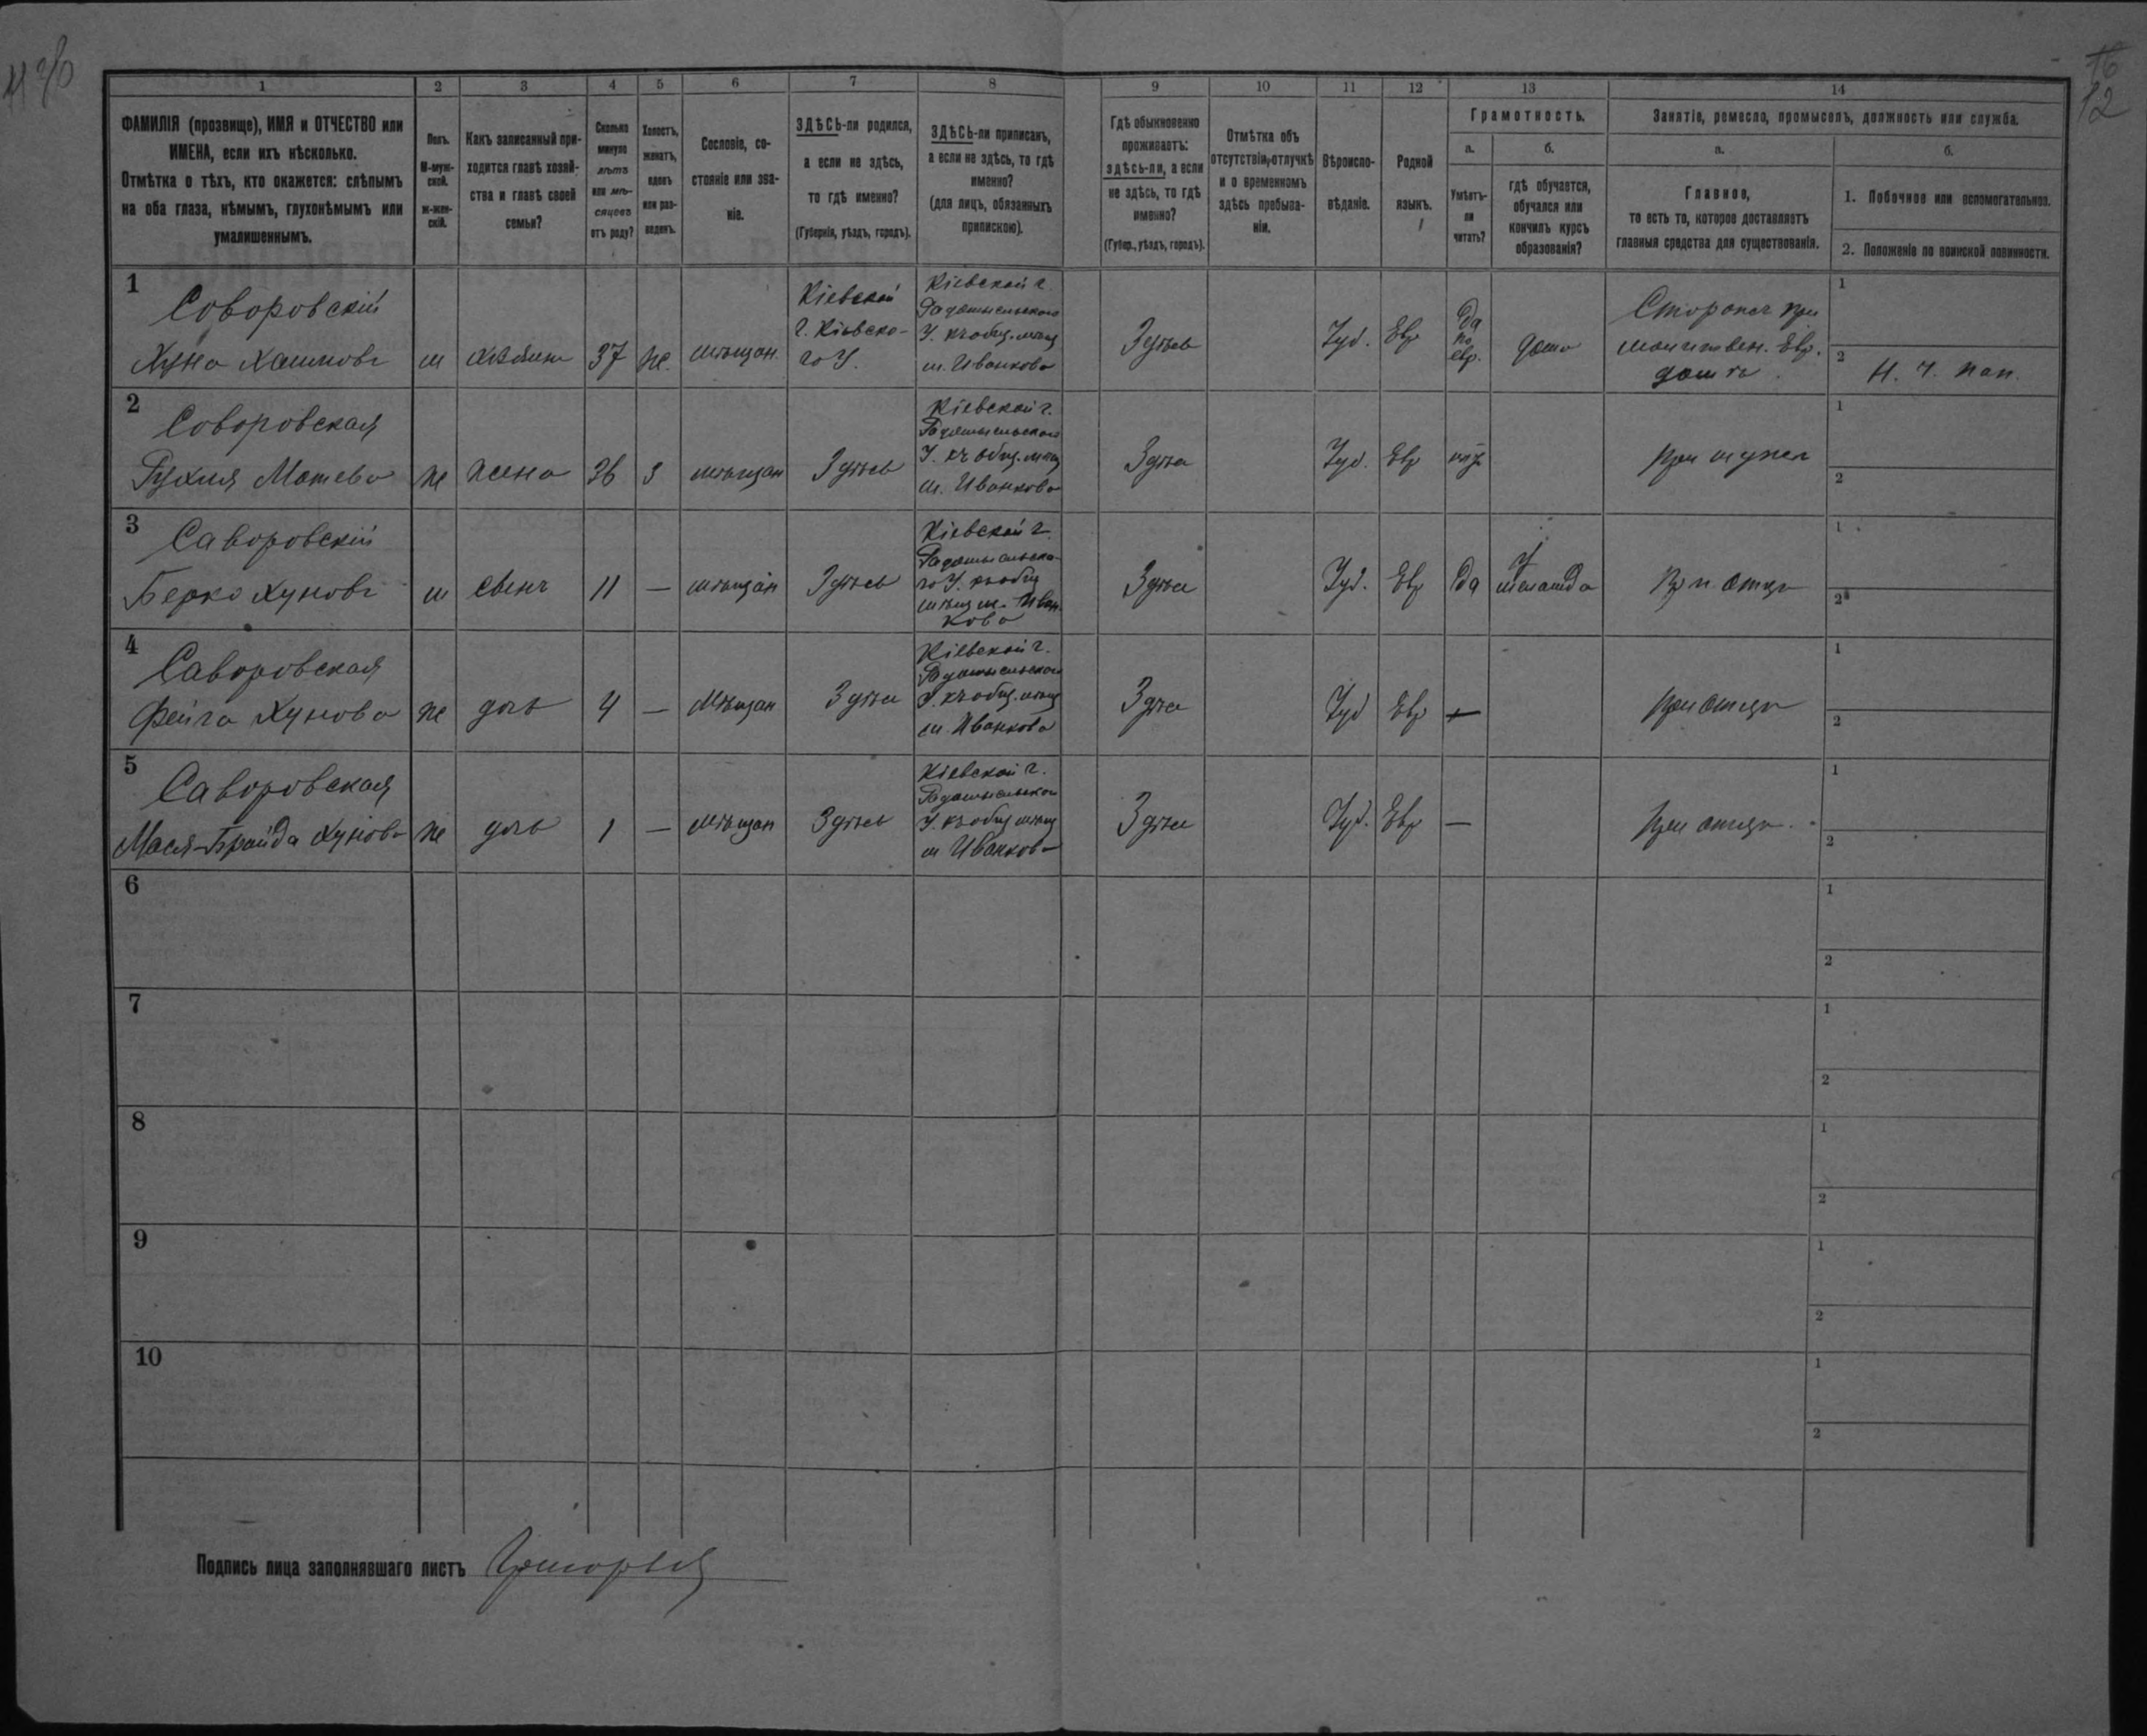 1 2 3 4 5 6 7 8 9 10 11 12 13 14
ФАМИЛІЯ (прозвище), ИМЯ и ОТЧЕСТВО или
ИМЕНА, если ихъ нѣсколько.
Отмѣтка о тѣхъ, кто окажется: слѣпымъ
на оба глаза, нѣмымъ, глухонѣмымъ или
умалишеннымъ.
Полъ.
М-муж-
ской.
ж-жен-
скій.
Какъ записанный при-
ходится главѣ хозяй-
ства и главѣ своей
семьи?
Сколько
минуло
лѣтъ
или мѣ-
сяцевъ
отъ роду?
Холостъ,
женатъ,
вдовъ
или раз-
веденъ.
Сословіе, со-
стояніе или зва-
ніе.
ЗДѢСЬ-ли родился,
а если не здѣсь,
то гдѣ именно?
(Губернія, уѣздъ, городъ).
ЗДѢСЬ-ли приписанъ,
а если не здѣсь, то гдѣ
именно?
(для лицъ, обязанныхъ
припискою).
Гдѣ обыкновенно
проживаетъ:
здѣсь-ли, а если
не здѣсь, то гдѣ
именно?
(Губер., уѣздъ, городъ).
Отмѣтка объ
отсутствіи, отлучкѣ
и о временномъ
здѣсь пребыва-
ніи.
Вѣроиспо-
вѣданіе.
Родной
языкъ.
Грамотность.
а.
Умѣетъ-
ли
читать?
б.
гдѣ обучается,
обучался или
кончилъ курсъ
образованія?
Занятіе, ремесло, промыселъ, должность или служба.
а.
Главное,
то есть то, которое доставляетъ
главныя средства для существованія.
б.
1. Побочное или вспомогательное.
2. Положеніе по воинской повинности.
1
Соворовскій
Хуна Хаимовъ
м
хозяинъ
37
же.
мѣщан.
Кіевской
г. Кіевско-
го У.
Кіевской г.
Радомысльского
У. къ общ. мѣщ
м. Иванкова
Здѣсь
Іуд.
Евр
да
по
евр.
дома
Сторожъ при
молитвен. Евр.
домѣ
1
2
2
Соворовская
Рухля Мотева
же
жена
36
З
мѣщан
Здѣсь
Кіевской г.
Радомысльского
У. къ общ. мѣщ
м. Иванкова
Здѣсь
Іуд.
Евр
нѣт
при мужѣ
1
2
3
Саворовскій
Берко Хуновъ
м
сынъ
11
—
мѣщан
Здѣсь
Кіевской г.
Радомысльско-
го У. къ общ
мѣщ м. Иван
кова
Здѣсь
Іуд.
Евр
да
У
меламда
При отцѣ
1
2
4
Саворовская
Фейга Хунова
же
дочь
4
—
Мѣщан
Здѣсь
Кіевской г.
Радомысльского
У. къ общ. мѣщ
м. Иванкова
Здѣсь
Іуд
Евр
—
при отцѣ
1
2
5
Саворовская
Мася-Брайда Хунова
же
дочь
1
—
мѣщан
Здѣсь
Кіевской г.
Радомысльского
У. къ общ мѣщ
м Иванкова
Здѣсь
Іуд.
Евр
—
При отцѣ.
1
2
6
1
2
7
1
2
8
1
2
9
1
2
10
1
2
Подпись лица заполнявшаго листъ